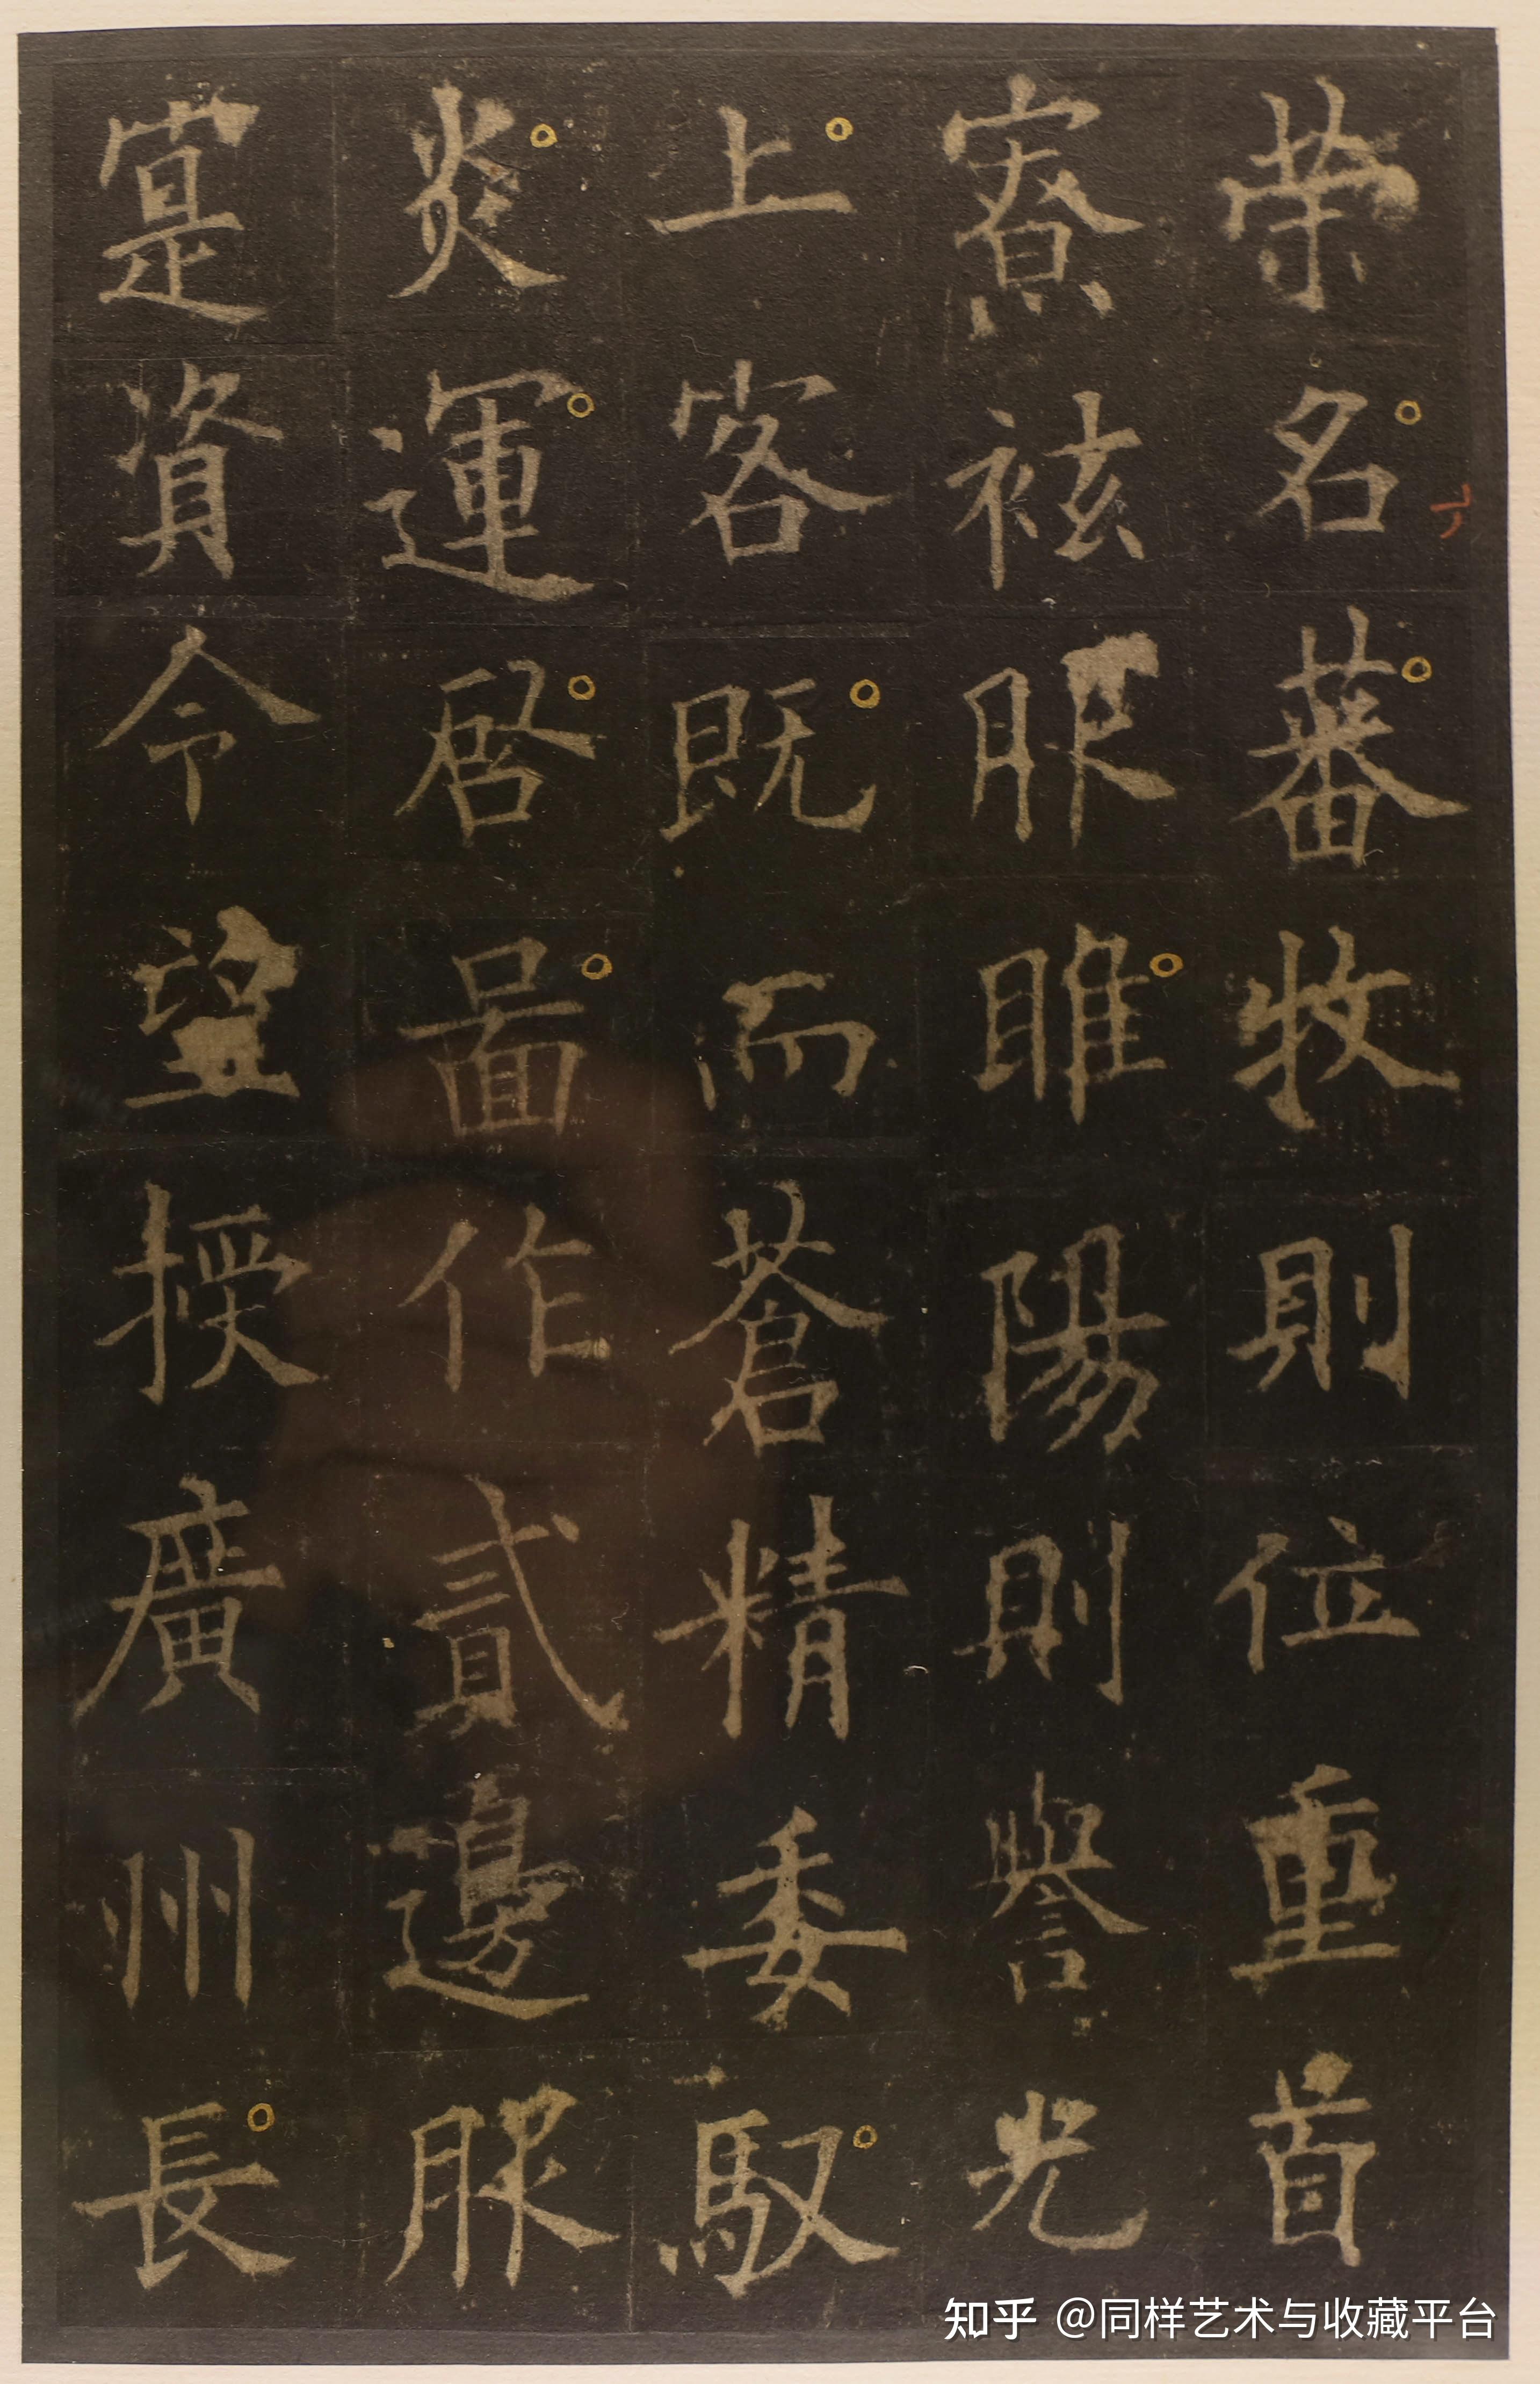 榮名蕃牧則位重首
寮袨服睢陽則譽光
上客既而蒼精委馭
炎運啓圖作貳邊服
寔資令望授廣州長
知乎 @同样艺术与收藏平台